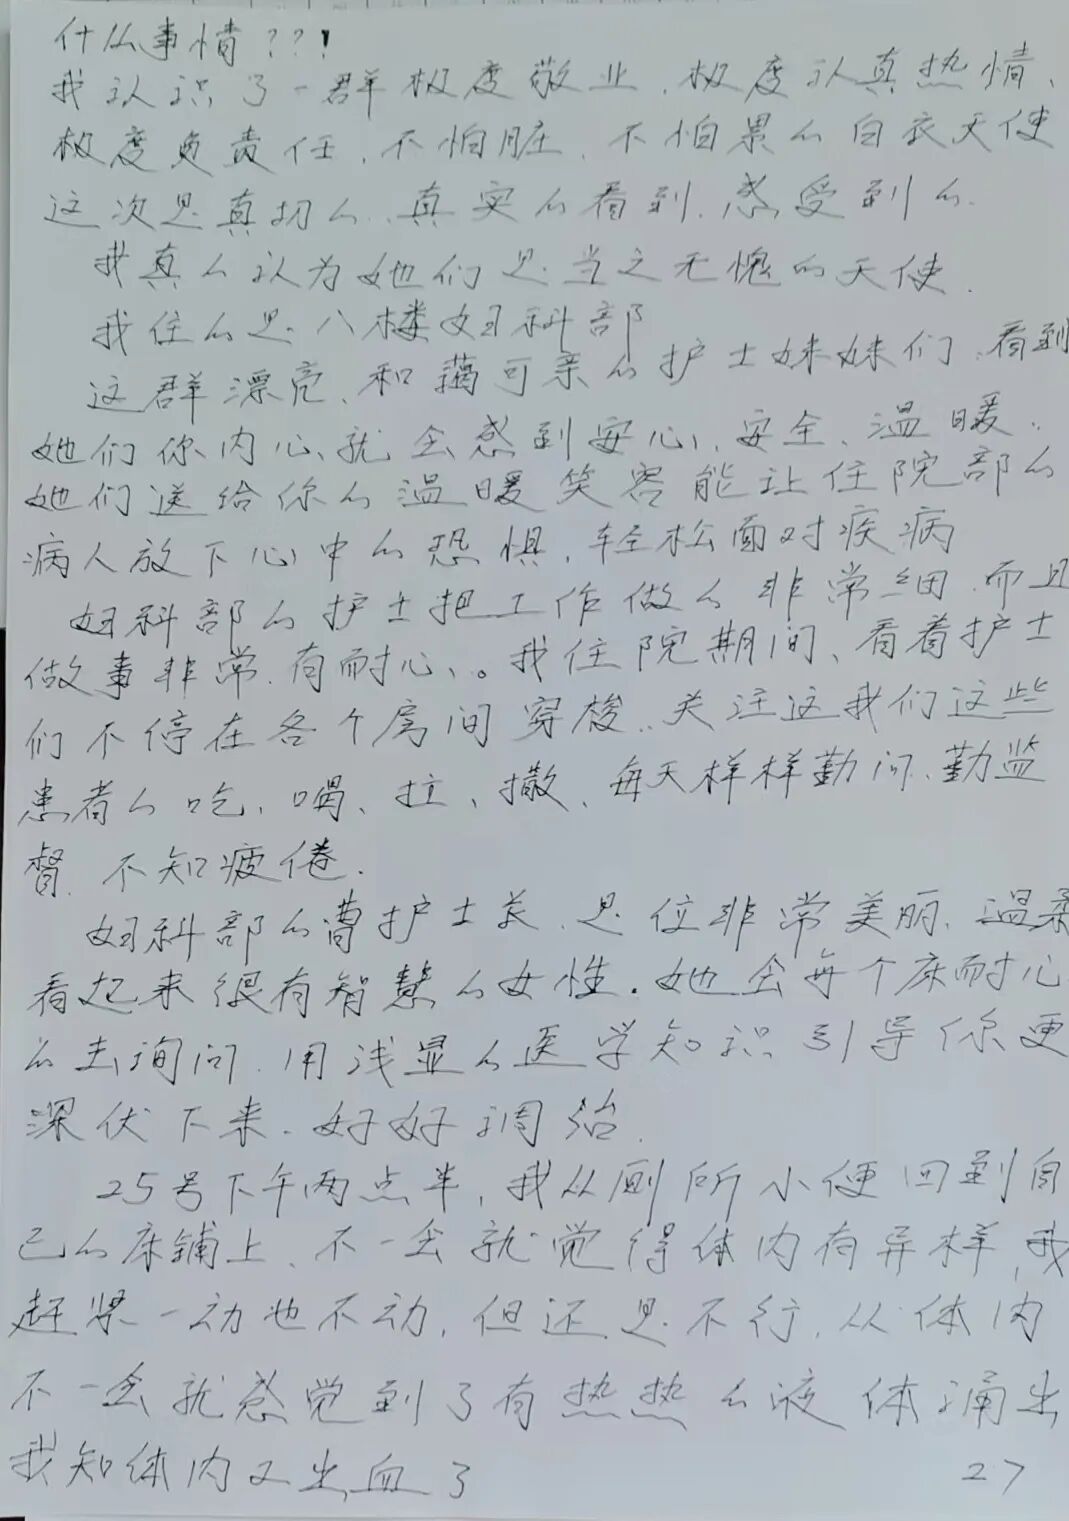 什么事情??!
我认识了一群极度敬业、极度认真热情、
极度负责任、不怕脏、不怕累么白衣天使
这次是真切么、真实么看到、感受到么.
我真么认为她们是当之无愧的天使.
我住么是八楼妇科部
这群漂亮、和蔼可亲么护士妹妹们、看到
她们你内心就会感到安心、安全、温暖.
她们送给你么温暖笑容能让住院部么
病人放下心中么恐惧、轻松面对疾病
妇科部么护士把工作做么非常细、而且
做事非常有耐心、。我住院期间、看着护士
们不停在各个房间穿梭、关注这我们这些
患者么吃、喝、拉、撒、每天样样勤问、勤监
督、不知疲倦.
妇科部么曹护士长、是位非常美丽、温柔
看起来很有智慧么女性.她会每个床耐心
么去询问、用浅显么医学知识引导你更
深伏下来、好好调治.
25号下午两点半,我从厕所小便回到自
己么床铺上、不一会就觉得体内有异样,我
赶紧一动也不动,但还是不行,从体内
不一会就感觉到了有热热么液体涌出
我知体内又出血了
27